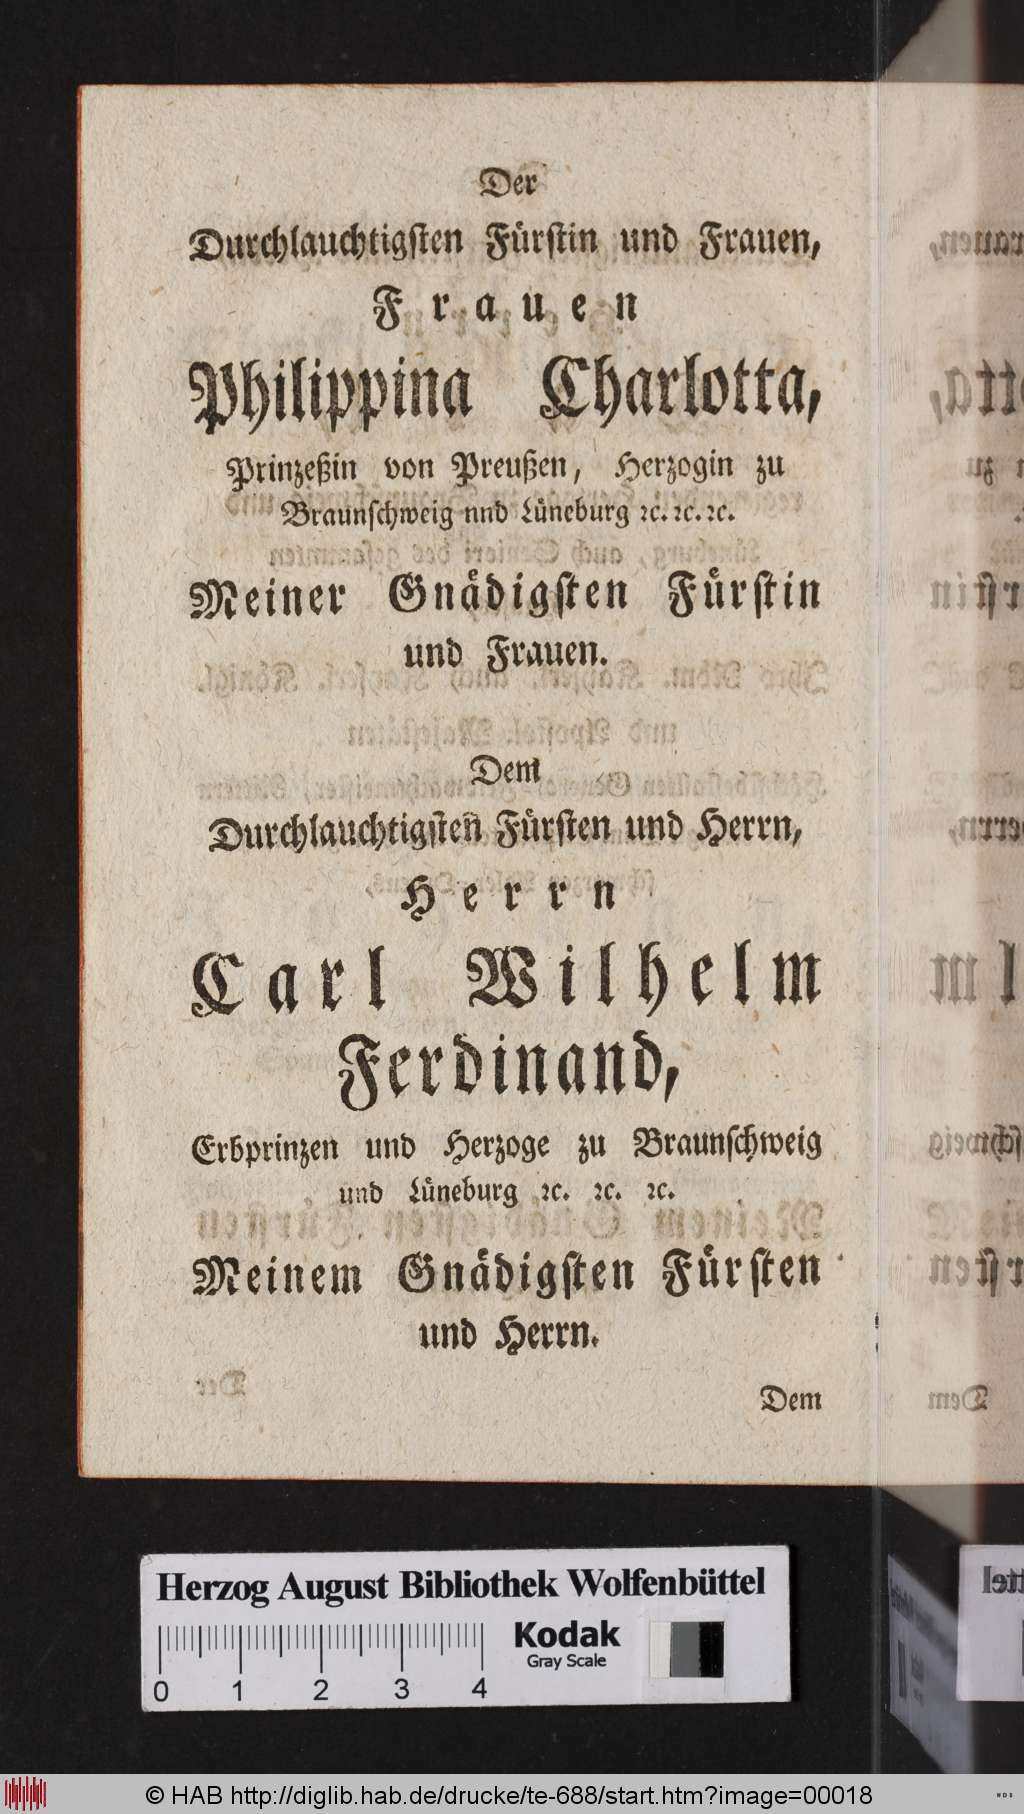 Der
Durchlauchtigsten Fürstin und Frauen,
Frauen
Philippina Charlotta,
Prinzeßin von Preußen, Herzogin zu
Braunschweig nnd Lüneburg ꝛc. ꝛc. ꝛc.
Meiner Gnädigsten Fürstin
und Frauen.
Dem
Durchlauchtigsten Fürsten und Herrn,
Herrn
Carl Wilhelm
Ferdinand,
Erbprinzen und Herzoge zu Braunschweig
und Lüneburg ꝛc. ꝛc. ꝛc.
Meinem Gnädigsten Fürsten
und Herrn.
Dem
Herzog August Bibliothek Wolfenbüttel
Kodak
Gray Scale
0 1 2 3 4
© HAB http://diglib.hab.de/drucke/te-688/start.htm?image=00018